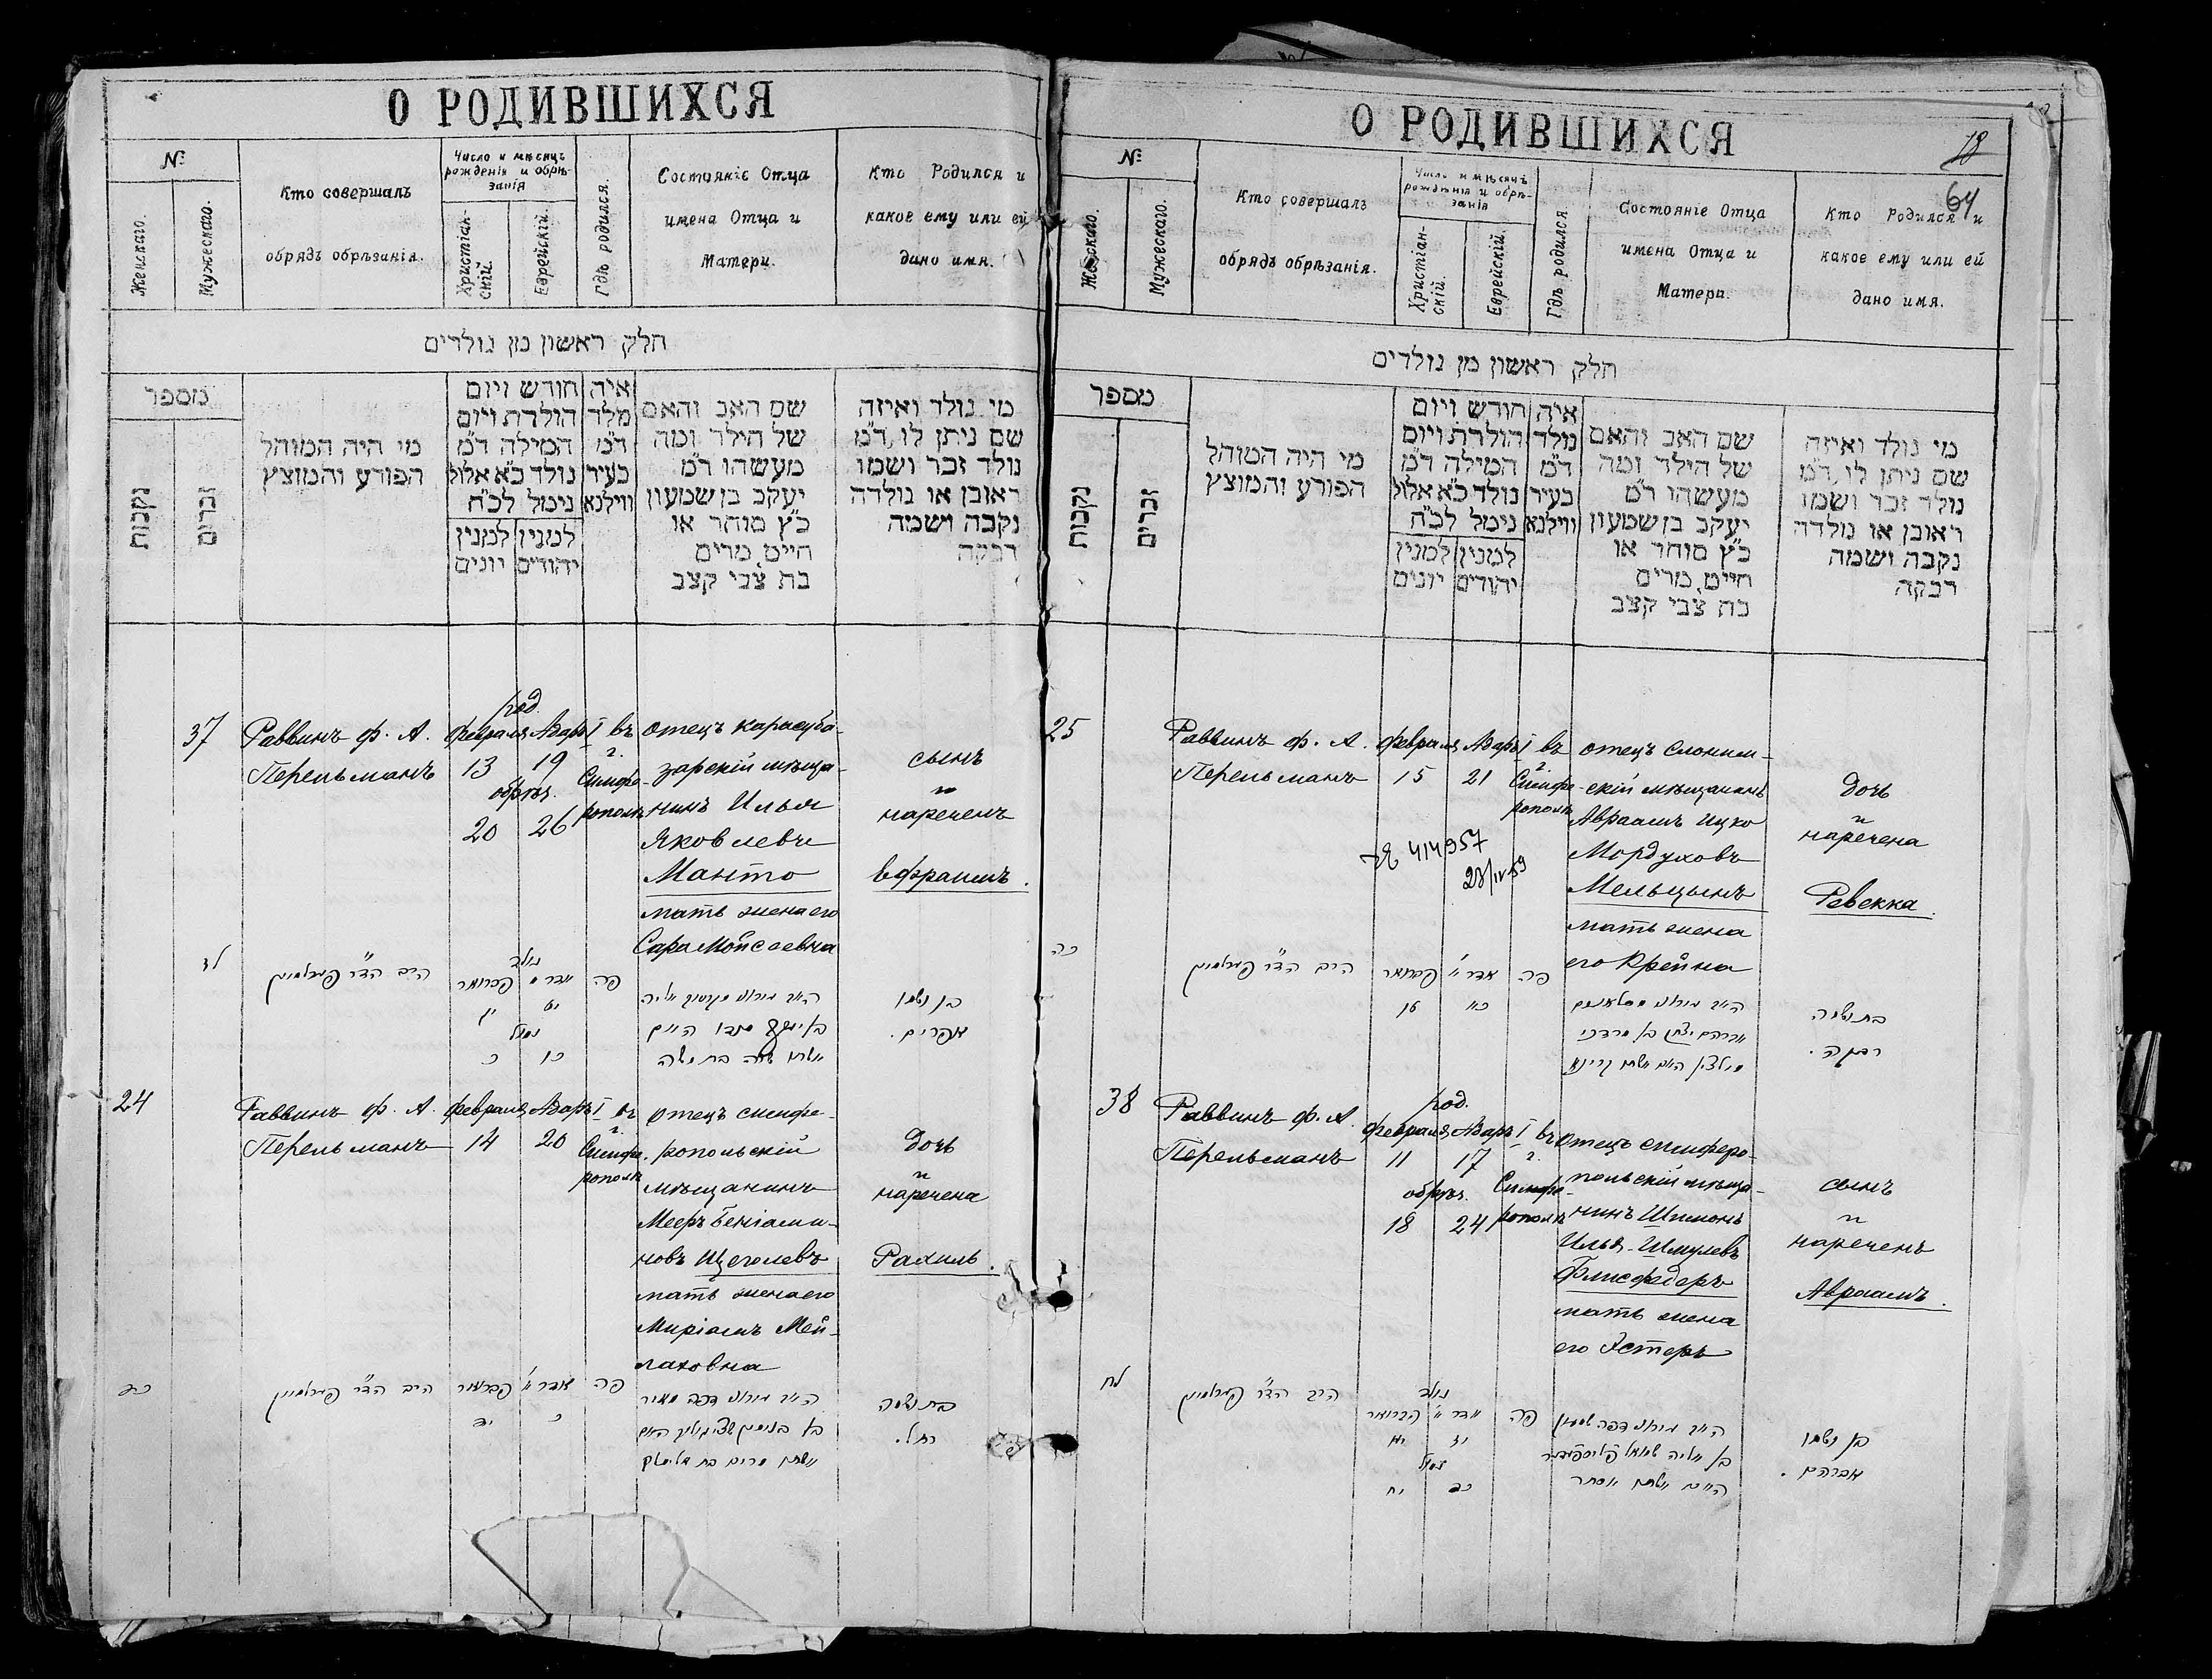 О РОДИВШИХСЯ
№
Женскаго.
Мужескаго.
Кто совершалъ
обрядъ обрѣзанія.
Число и мѣсяцъ
рожденія и обрѣ-
занія
Христіан-
скій.
Еврейскій.
Гдѣ родился.
Состояніе Отца
имена Отца и
Матери.
Кто Родился и
какое ему или ей
дано имя.
חלק ראשון מן נולדים
מספר
נקבות
זכרים
מי היה המוהל
הפורע והמוצץ
חודש ויום
הולדת ויום
המילה ד"מ
נולד כ"א אלול
נימל לכ"ח
למנין
יהודים
למנין
יונים
איה
מלד
ד"מ
בעיר
ווילנא
שם האב והאם
של הילד ומה
מעשהו ד"מ
יעקב בן שמעון
כ"ץ סוחר או
חייט מרים
בת צבי קצב
מי נולד ואיזה
שם ניתן לו ד"מ
נולד זכר ושמו
ראובן או נולדה
נקבה ושמה
רבקה
37
Раввинъ Ф. А.
Перельманъ
род.
Февраля Адаръ I
13 19
обрѣз.
20 26
въ
г.
Симфе-
рополѣ
отецъ карасуба-
зарскій мѣща-
нинъ Илья
Яковлевъ
Манто
мать жена его
Сара Мойсеевна
сынъ
и
нареченъ
Ефраимъ.
לז
הרב הד"ר פערלמאן
נולד
פברואר
יג
יט
נמול
כ
כו
פה
בן ושמו
אפרים.
24
Раввинъ Ф. А.
Перельманъ
Февраля Адаръ I
14 20
въ
г.
Симфе-
рополѣ
отецъ симфе-
ропольскій
мѣщанинъ
Мееръ Беніами-
новъ Щеголевъ
мать жена его
Миріамъ Мей-
лаховна
дочь
и
наречена
Рахиль.
כד
הרב הד"ר פערלמאן
פברואר
יד
כ
פה
בת ושמה
רחל.
О РОДИВШИХСЯ
18
64
№
Женскаго.
Мужескаго.
Кто совершалъ
обрядъ обрѣзанія.
Число и мѣсяцъ
рожденія и обрѣ-
занія
Христіан-
скій.
Еврейскій.
Гдѣ родился.
Состояніе Отца
имена Отца и
Матери.
Кто Родился и
какое ему или ей
дано имя.
חלק ראשון מן נולדים
מספר
נקבות
זכרים
מי היה המוהל
הפורע והמוצץ
חודש ויום
הולדת ויום
המילה ד"מ
נולד כ"א אלול
נימל לכ"ח
למנין
יהודים
למנין
יונים
איה
נולד
ד"מ
בעיר
ווילנא
שם האב והאם
של הילד ומה
מעשהו ד"מ
יעקב בן שמעון
כ"ץ סוחר או
חייט מרים
בת צבי קצב
מי נולד ואיזה
שם ניתן לו ד"מ
נולד זכר ושמו
ראובן או נולדה
נקבה ושמה
רבקה
25
Раввинъ Ф. А.
Перельманъ
Февраля Адаръ I
15 21
въ
г.
Симфе-
рополѣ
414957
28/IV-59
отецъ слоним-
скій мѣщанинъ
Авраамъ Ицко
Мордуховъ
Мельцынъ
мать жена
его Крейна
дочь
и
наречена
Ревекка.
כה
הרב הד"ר פערלמאן
פברואר
טו
כא
פה
בת ושמה
רבקה.
38
Раввинъ Ф. А.
Перельманъ
род.
Февраля Адаръ I
11 17
обрѣз.
18 24
въ
г.
Симфе-
рополѣ
отецъ симферо-
польскій мѣща-
нинъ Шимонъ
Илья-Шмулевъ
Флисфедеръ
мать жена
его Эстеръ
сынъ
и
нареченъ
Авраамъ.
לח
הרב הד"ר פערלמאן
נולד
פברואר
יא
יז
נמול
יח
כד
פה
בן ושמו
אברהם.